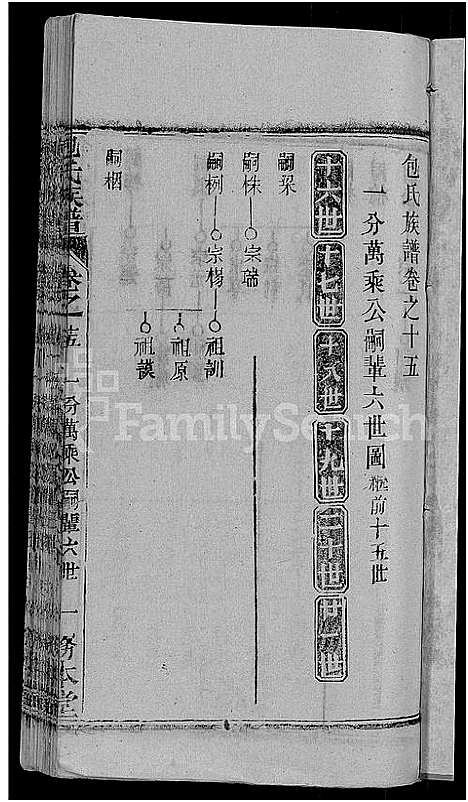 包氏族譜卷之十五
一分萬乘公嗣輩六世圖 前十五世
十六世 十七世 十八世 十九世 二十世 廿一世
嗣琹
嗣株 宗瑞
嗣栵 宗楊 祖訓
祖原
祖謨
嗣栶
包氏族譜 卷之十五 一分萬乘公嗣輩六世 一 務本堂
FamilySearch